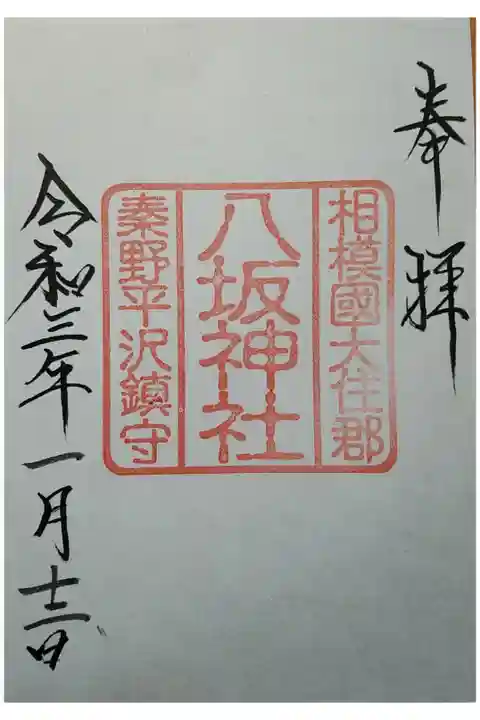 奉拝
相模國大住郡
八坂神社
秦野平沢鎮守
令和三年一月十二日